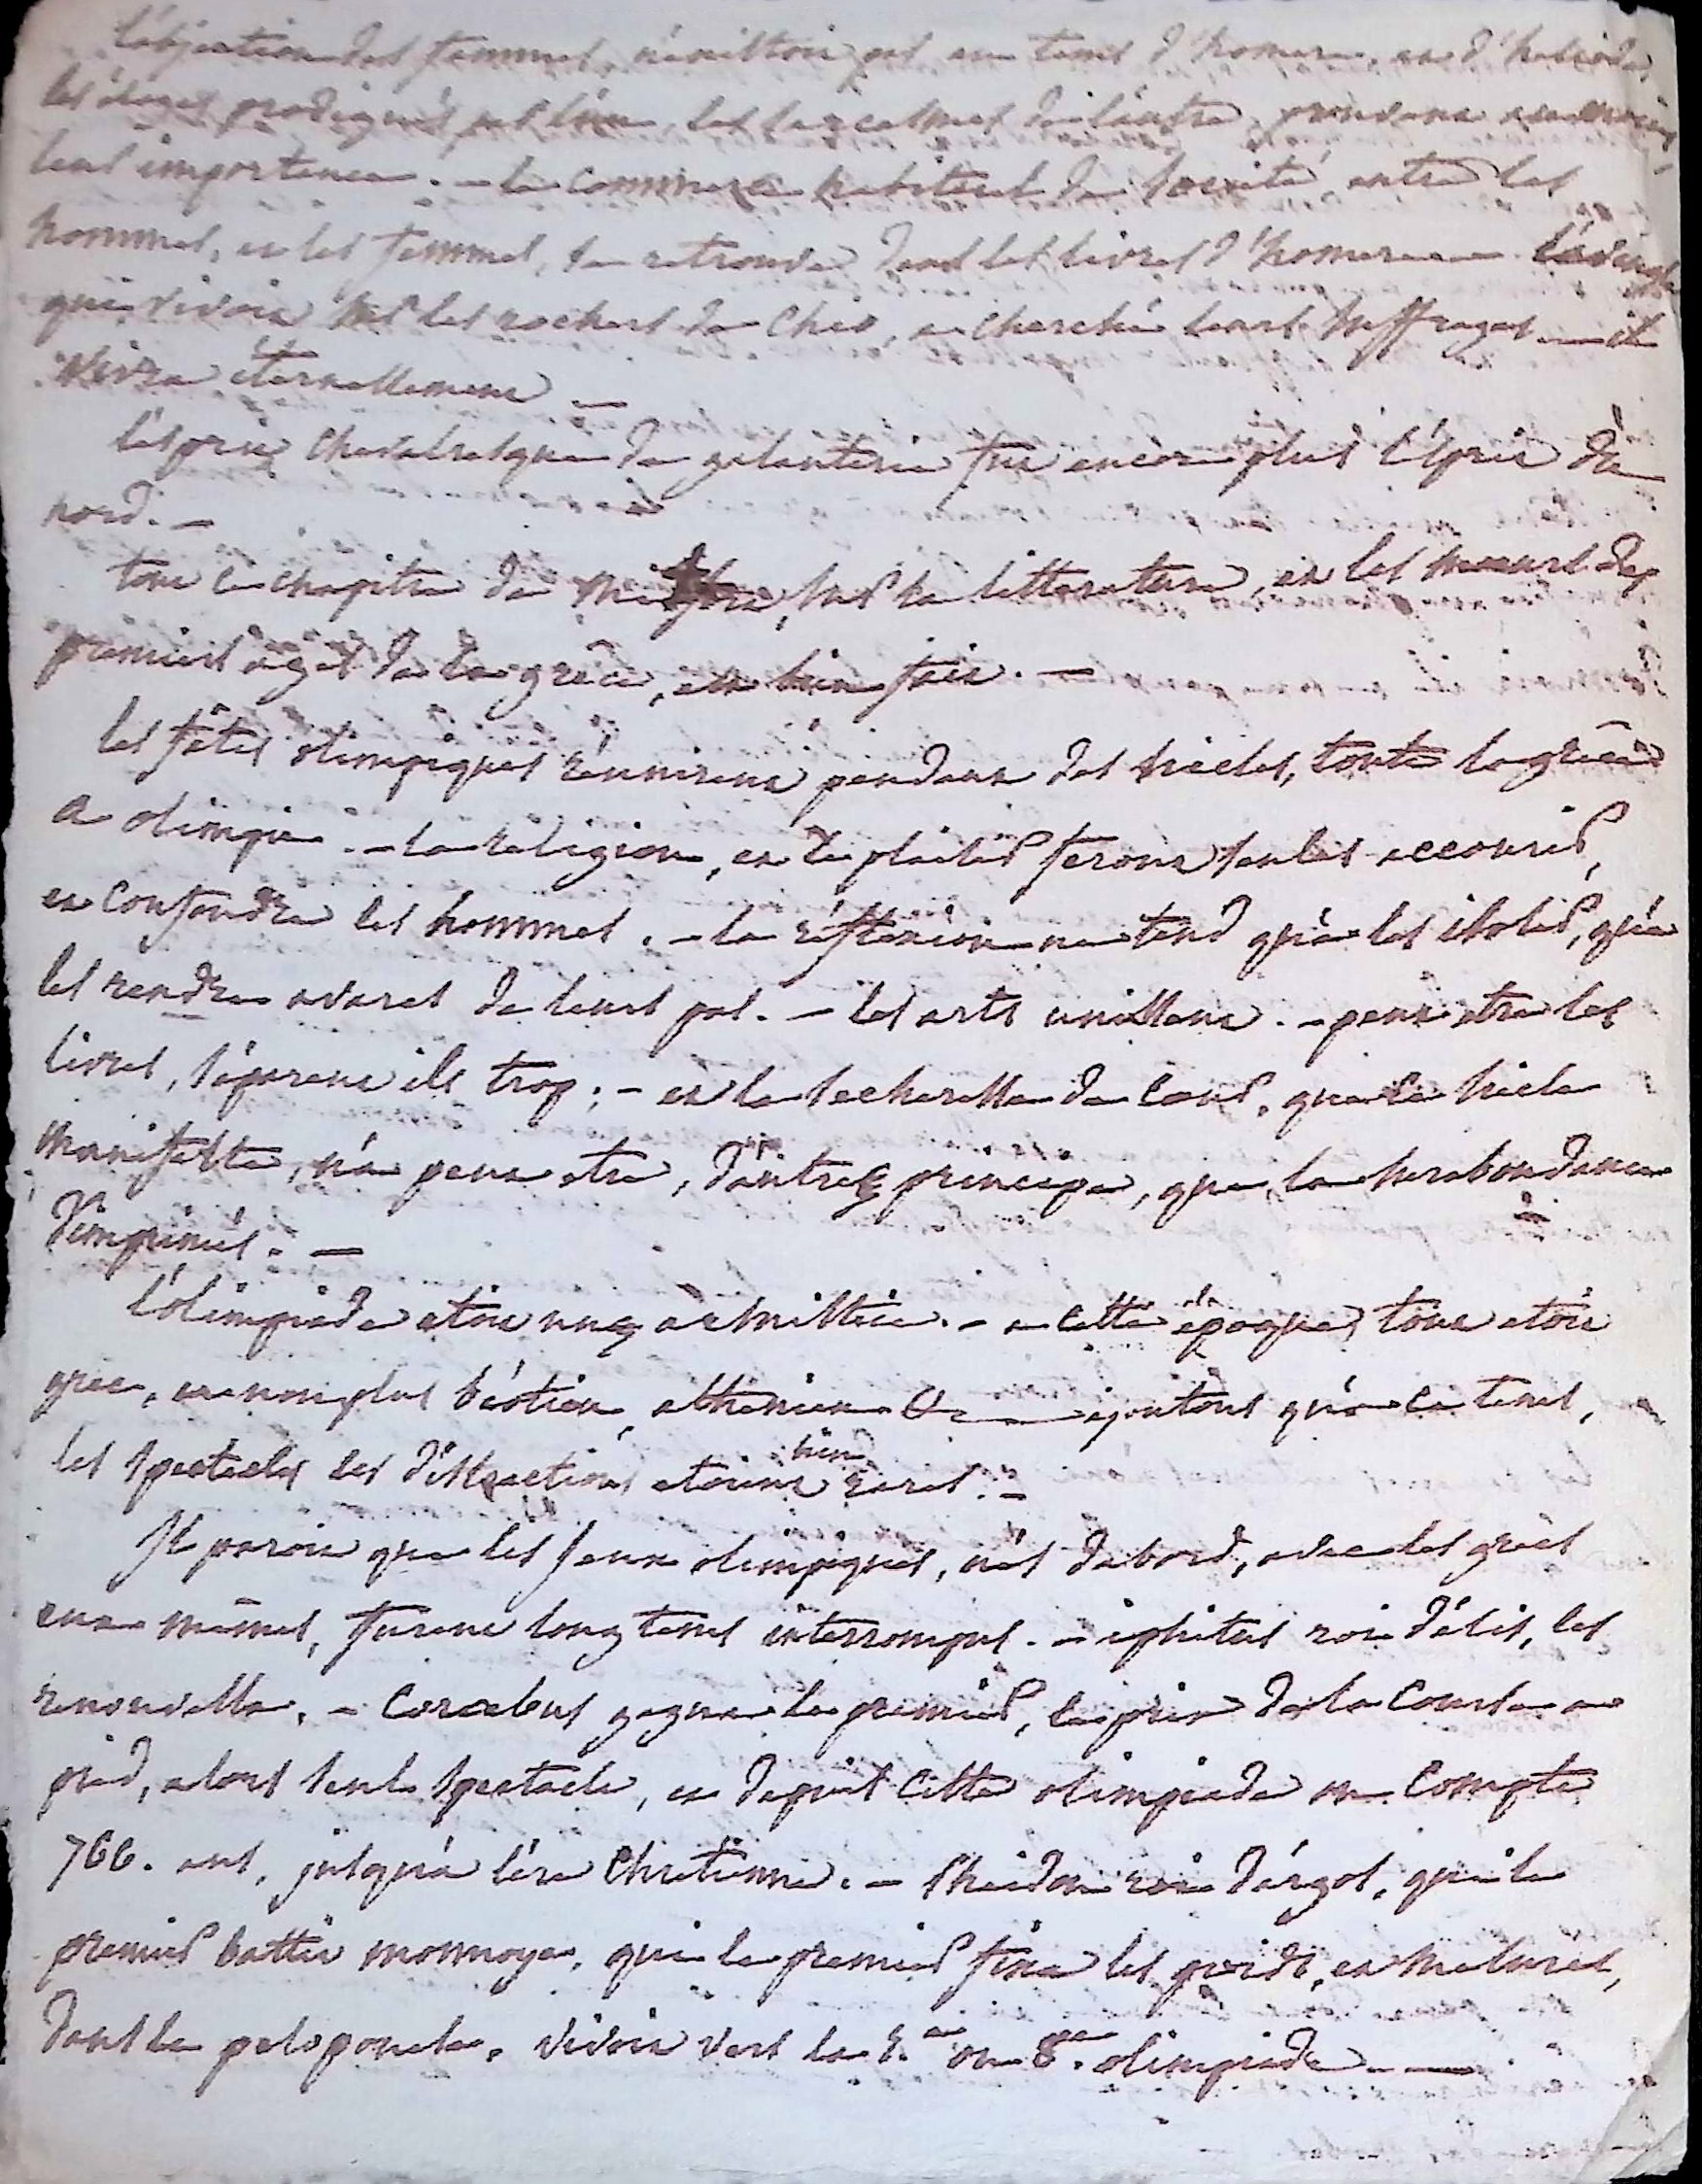 l'abjection des femmes, n'existoit pas au tems d'homere, et d'hesiode,
les éloges prodigués par l'un, les sarcasmes de l'autre, prouvent au moins
leur importance. - le commerce habituel de société, entre les
hommes, et les femmes, se retrouve dans les livres d'homere — l'aveugle
qui vivoit sur les rochers de Chio, a cherché leurs suffrages — il
vivra éternellement —
l'esprit chevaleresque de galanterie fut encore plus l'esprit du
nord. —
tout ce chapitre de sur la litterature, et les moeurs des
premiers ages de la grèce, est bien fait. —
les fêtes olimpiques réunirent pendant des siecles, toute la grèce
a olimpie. - la religion, et le plaisir feront seules accourir,
et confondre les hommes. - la réflexion ne tend qu'a les isoler, qu'a
les rendre avares de leurs pas. - les arts unissent. - peut etre les
livres, séparent ils trop; - et la secheresse de coeur, que le siecle
manifeste, n'a peut etre, d'autre principe, que la surabondance
d'imprimés. —
l'olimpiade etoit une armistice. - a cette epoque, tout etoit
grec, et non plus béotien, athenien &c — ajoutons qu'en ce tems,
les spectacles les distractions etoient bien rares. -
Il paroit que les jeux olimpiques, nés d'abord, avec les grecs
eux mêmes, furent long tems interrompus. - iphitus roi d'élis, les
renouvella. - Coroebus gagna le premier, le prix de la course a
pied, alors seul spectacle, et depuis cette olimpiade on compte
766. ans, jusqu'a l'ère chrétienne. - Pheidon roi d'argos, qui le
premier battit monnoye, qui le premier fixa les poids, et mesures,
dans le peloponese, vivoit vers la ou 8.e olimpiade —